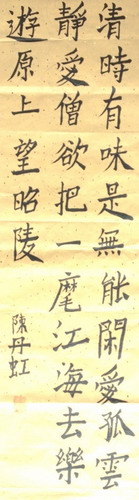 清時有味是無能閑愛孤雲
靜愛僧欲把一麾江海去樂
遊原上望昭陵
陳丹虹